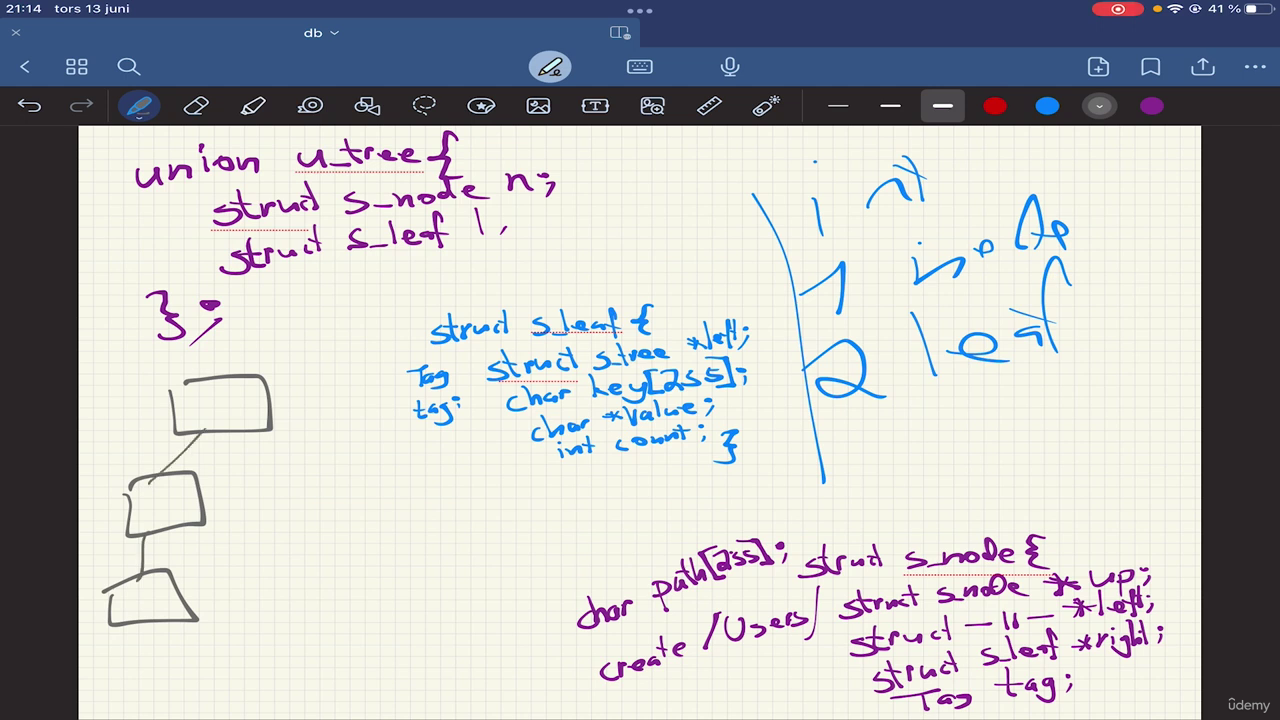 21:14 tors 13 juni
41 %
db
union u_tree {
struct s_node n;
struct s_leaf l,
};
int
1 in
2 leaf
struct s_leaf {
struct s_tree *left;
Tag tag;
char key[255];
char *value;
int count; }
char path[255];
create /Users/
struct s_node {
struct s_node * up;
struct —"— *left;
struct s_leaf *right;
Tag tag;
ûdemy